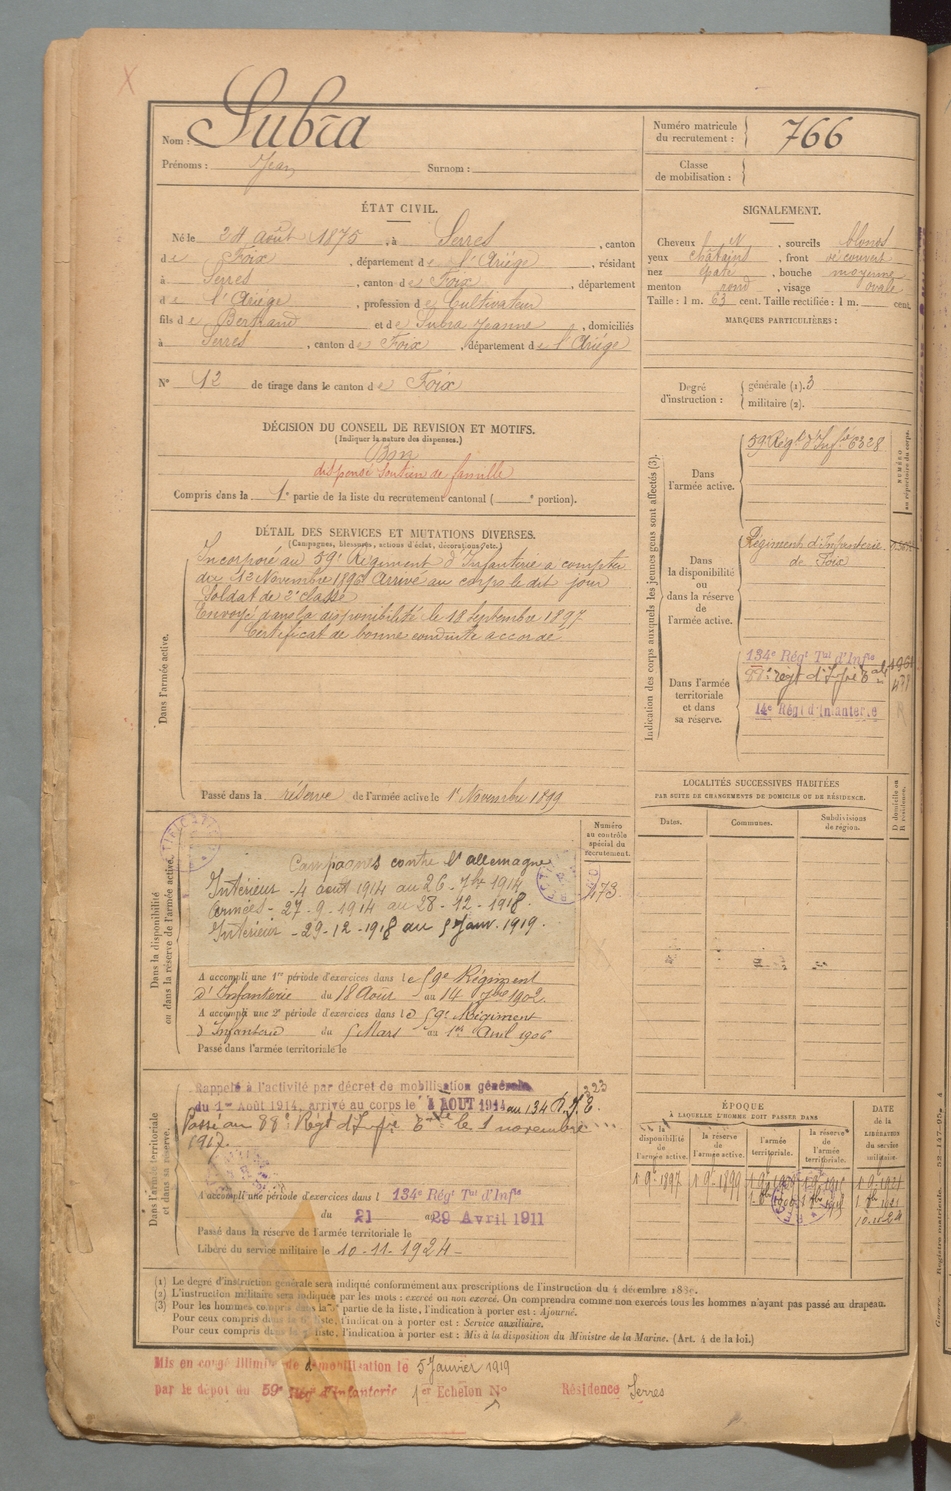 Nom : Subra
Prénoms : Jean Surnom :
Numéro matricule du recrutement : 766
Classe de mobilisation :
ÉTAT CIVIL.
Né le 24 Août 1875, à Serres, canton
de Foix, département de l'Ariège, résidant
à Serres, canton de Foix, département
de l'Ariège, profession de Cultivateur
fils de Bertrand et de Subra Jeanne, domiciliés
à Serres, canton de Foix, département de l'Ariège
N° 12 de tirage dans le canton de Foix
SIGNALEMENT.
Cheveux, sourcils blonds
yeux châtains, front découvert
nez épaté, bouche moyenne
menton rond, visage ovale
Taille : 1 m. 63 cent. Taille rectifiée : 1 m. cent.
MARQUES PARTICULIÈRES :
Degré d'instruction : générale (1). 3
militaire (2).
DÉCISION DU CONSEIL DE REVISION ET MOTIFS.
(Indiquer la nature des dispenses.)
Bon
dispensé Soutien de famille
Compris dans la 1e partie de la liste du recrutement cantonal ( e portion).
DÉTAIL DES SERVICES ET MUTATIONS DIVERSES.
(Campagnes, blessures, actions d'éclat, décorations, etc.)
Dans l'armée active.
Incorporé au 59e Régiment d'Infanterie à compter
du 13 Novembre 1896 Arrivé au corps le dit jour
Soldat de 2e classe
Envoyé dans la disponibilité le 18 Septembre 1897
Certificat de bonne conduite accordé
Passé dans la réserve de l'armée active le 1er Novembre 1899
Indication des corps auxquels les jeunes gens sont affectés (3).
Dans l'armée active.
59 Régt d'Infie 6328
Dans la disponibilité ou dans la réserve de l'armée active.
Régiment d'Infanterie
de Foix
Dans l'armée territoriale et dans sa réserve.
134e Régt Tal d'Infie
88e régt d'Infie
14e Régt d'Infanterie
LOCALITÉS SUCCESSIVES HABITÉES
PAR SUITE DE CHANGEMENTS DE DOMICILE OU DE RÉSIDENCE.
Dates. Communes. Subdivisions de région. D domicile ou R résidence.
Dans la disponibilité ou dans la réserve de l'armée active.
Numéro au contrôle spécial du recrutement.
473
Campagnes contre l'allemagne
Intérieur - 4 août 1914 au 26 - 7bre 1914
Armées - 27-9-1914 au 28-12-1918
Intérieur - 29-12-1918 au 5 Janv. 1919.
A accompli une 1re période d'exercices dans le 59e Régiment
d'Infanterie du 18 Août au 14 7bre 1902.
A accompli une 2e période d'exercices dans le 59e Régiment
d'Infanterie du 5 Mars au 1er Avril 1906
Passé dans l'armée territoriale le
Dans l'armée territoriale et dans sa réserve.
Rappelé à l'activité par décret de mobilisation générale
du 1er Août 1914, arrivé au corps le 4 AOUT 1914 au 134 R.I.T.
Passé au 88e Régt d'Infie le 1 novembre
1917.
A accompli une période d'exercices dans l 134e Régt Tal d'Infie
du 21 au 29 Avril 1911
Passé dans la réserve de l'armée territoriale le
Libéré du service militaire le 10-11-1924-
ÉPOQUE
À LAQUELLE L'HOMME DOIT PASSER DANS
la disponibilité de l'armée active.
la réserve de l'armée active.
l'armée territoriale.
la réserve de l'armée territoriale.
DATE de la LIBÉRATION du service militaire.
(1) Le degré d'instruction générale sera indiqué conformément aux prescriptions de l'instruction du 4 décembre
(2) L'instruction militaire sera indiquée par les mots : exercé ou non exercé. On comprendra comme non exercés tous les hommes n'ayant pas passé au drapeau.
(3) Pour les hommes compris dans la partie de la liste, l'indication à porter est : Ajourné.
Pour ceux compris dans la liste, l'indication à porter est : Service auxiliaire.
Pour ceux compris liste, l'indication à porter est : Mis à la disposition du Ministre de la Marine. (Art. 4 de la loi.)
Mis en congé illimité de démobilisation le 5 Janvier 1919
par le dépôt du 59e Rég d'Infanterie 1er Echelon N° Résidence Serres